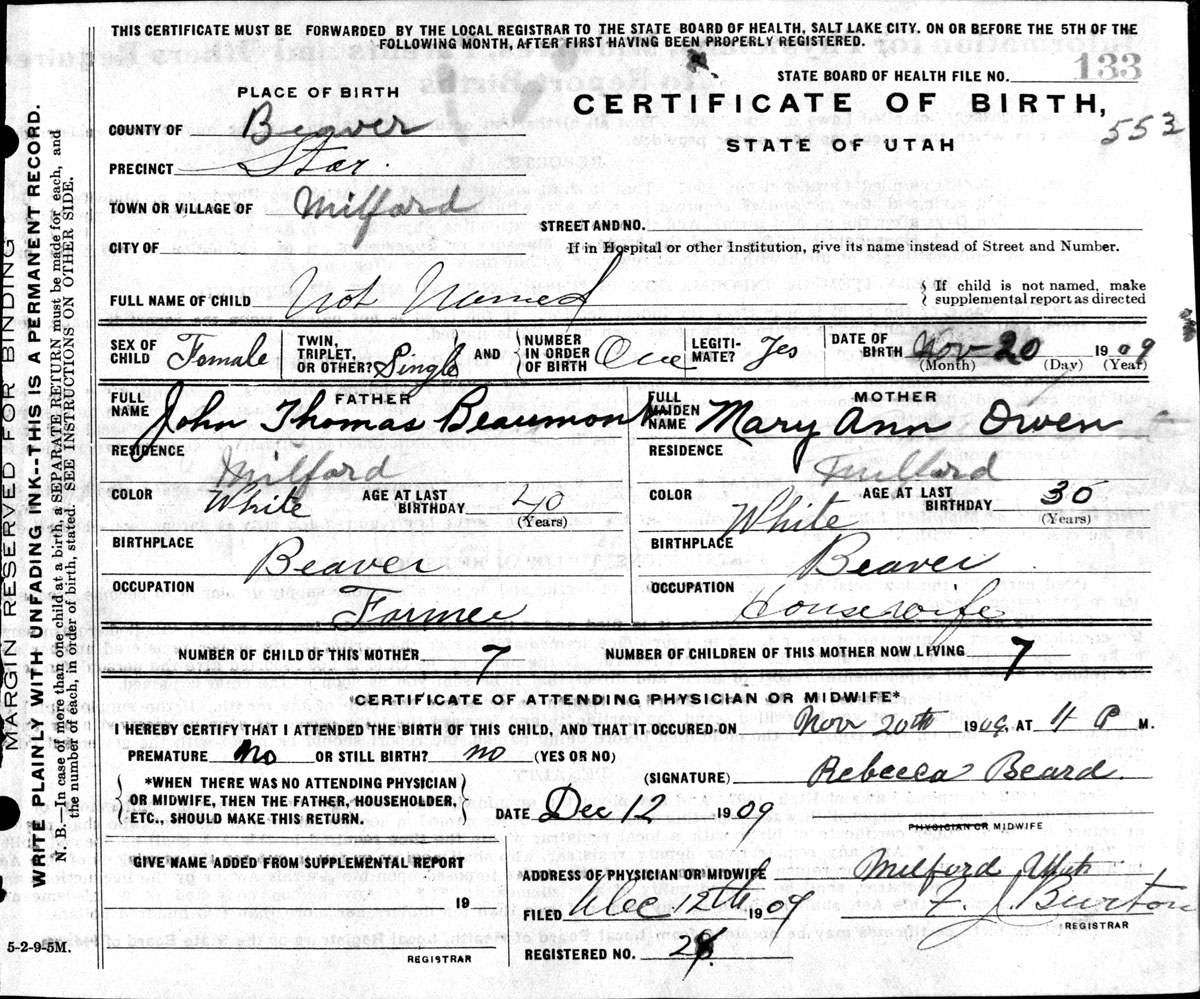 THIS CERTIFICATE MUST BE FORWARDED BY THE LOCAL REGISTRAR TO THE STATE BOARD OF HEALTH, SALT LAKE CITY. ON OR BEFORE THE 5TH OF THE
FOLLOWING MONTH, AFTER FIRST HAVING BEEN PROPERLY REGISTERED.
STATE BOARD OF HEALTH FILE NO. 133
PLACE OF BIRTH
CERTIFICATE OF BIRTH,
553
STATE OF UTAH
COUNTY OF Beaver
PRECINCT Star.
TOWN OR VILLAGE OF Milford
STREET AND NO.
CITY OF
If in Hospital or other Institution, give its name instead of Street and Number.
FULL NAME OF CHILD Not Named
If child is not named, make
supplemental report as directed
SEX OF CHILD Female
TWIN, TRIPLET, OR OTHER? Single
AND
NUMBER IN ORDER OF BIRTH One
LEGITI- MATE? Yes
DATE OF BIRTH Nov-20 1909
(Month) (Day) (Year)
FATHER
FULL NAME John Thomas Beaumont
MOTHER
FULL MAIDEN NAME Mary Ann Owen
RESIDENCE Milford
RESIDENCE Milford
COLOR White AGE AT LAST BIRTHDAY 40 (Years)
COLOR White AGE AT LAST BIRTHDAY 36 (Years)
BIRTHPLACE Beaver
BIRTHPLACE Beaver
OCCUPATION Farmer
OCCUPATION Housewife
NUMBER OF CHILD OF THIS MOTHER 7 NUMBER OF CHILDREN OF THIS MOTHER NOW LIVING 7
*CERTIFICATE OF ATTENDING PHYSICIAN OR MIDWIFE*
I HEREBY CERTIFY THAT I ATTENDED THE BIRTH OF THIS CHILD, AND THAT IT OCCURED ON Nov 20th 1909. AT 4 P M.
PREMATURE No OR STILL BIRTH? no (YES OR NO)
*WHEN THERE WAS NO ATTENDING PHYSICIAN
OR MIDWIFE, THEN THE FATHER, HOUSEHOLDER,
ETC., SHOULD MAKE THIS RETURN.
(SIGNATURE) Rebecca Beard.
DATE Dec 12 1909
PHYSICIAN OR MIDWIFE
GIVE NAME ADDED FROM SUPPLEMENTAL REPORT
19
REGISTRAR
ADDRESS OF PHYSICIAN OR MIDWIFE Milford Utah
FILED Dec 12th 1909
F. J. Burton
REGISTRAR
REGISTERED NO.
5-2-9-5M.
MARGIN RESERVED FOR BINDING
WRITE PLAINLY WITH UNFADING INK--THIS IS A PERMANENT RECORD.
N. B.—In case of more than one child at a birth, a SEPARATE RETURN must be made for each, and
the number of each, in order of birth, stated. SEE INSTRUCTIONS ON OTHER SIDE.